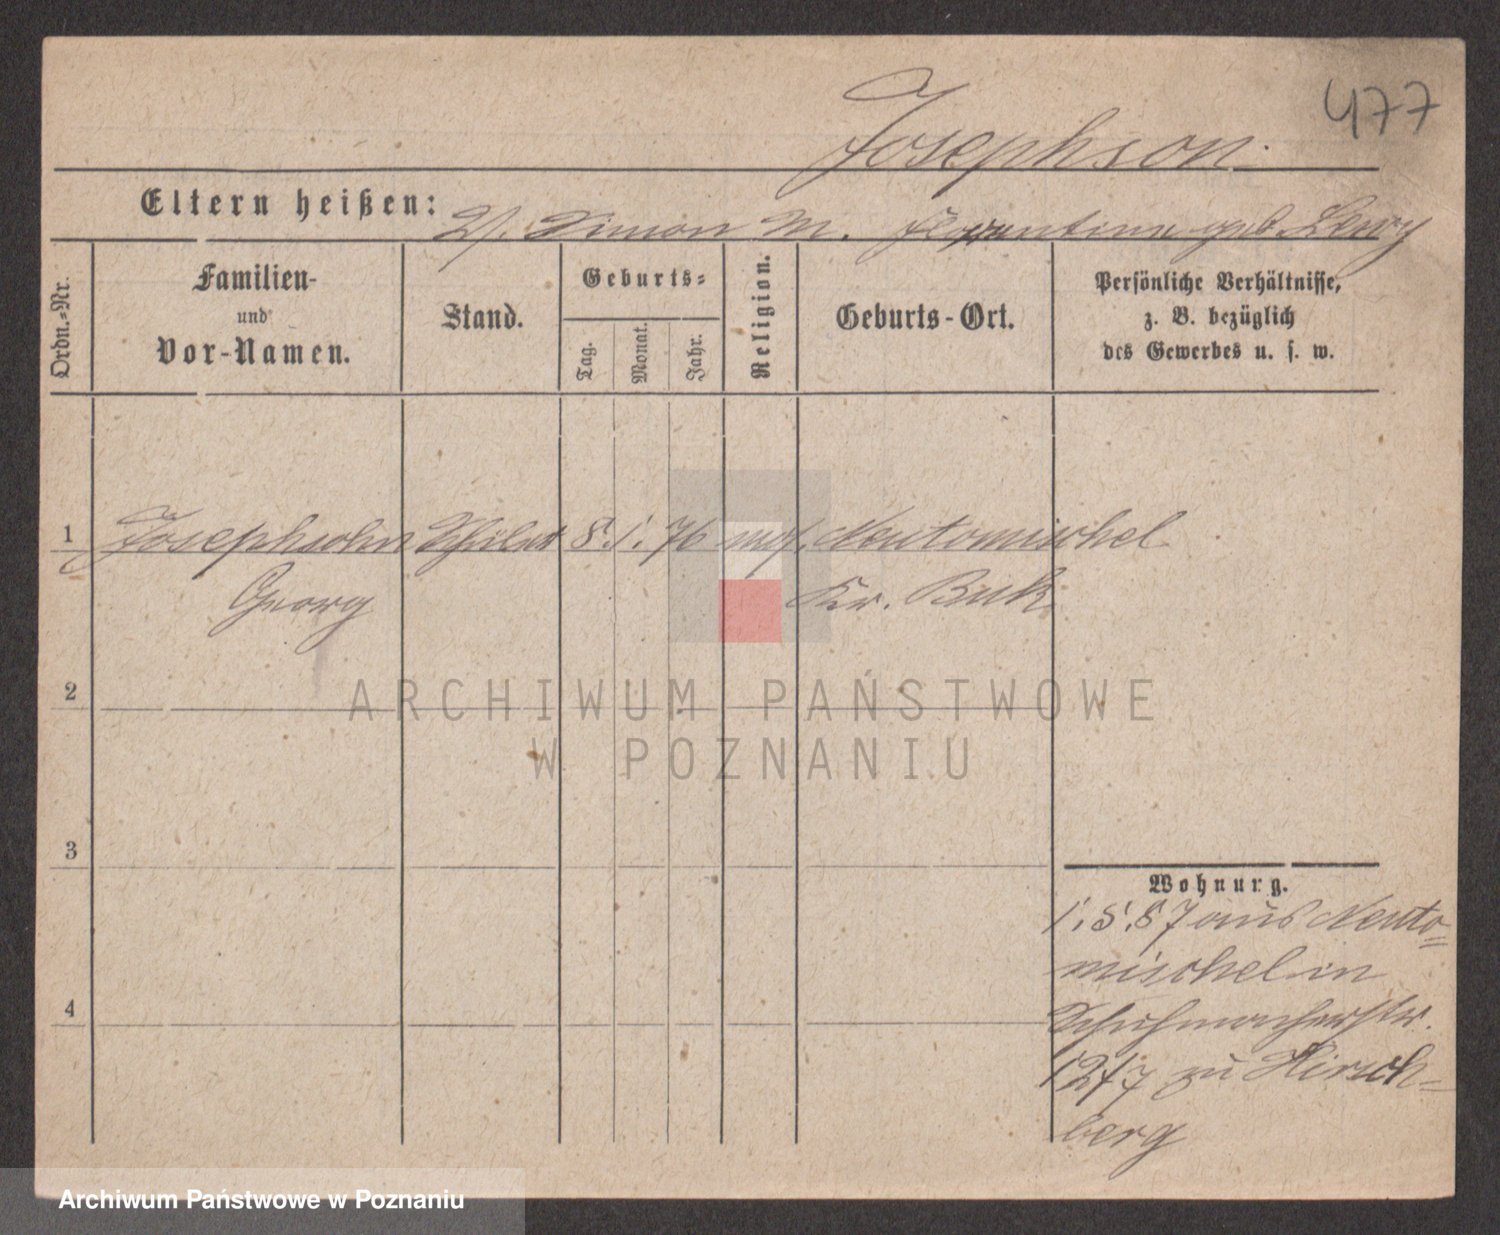 477
Josephson.
Eltern heißen: V. Simon M. Florentine geb Lewy
Ordn.-Nr.
Familien-
und
Vor-Namen.
Stand.
Geburts-
Tag.
Monat.
Jahr.
Religion.
Geburts-Ort.
Persönliche Verhältnisse,
z. B. bezüglich
des Gewerbes u. s. w.
1 Josephsohn Schüler 8. 1. 76 mos. Neutomischel
Georg Kr. Buk.
2
ARCHIWUM PAŃSTWOWE
W POZNANIU
3
Wohnung.
1. 5. 87 aus Neuto=
mischel in
4
Schuhmacherstr.
12/7 zu Hirsch=
berg
Archiwum Państwowe w Poznaniu